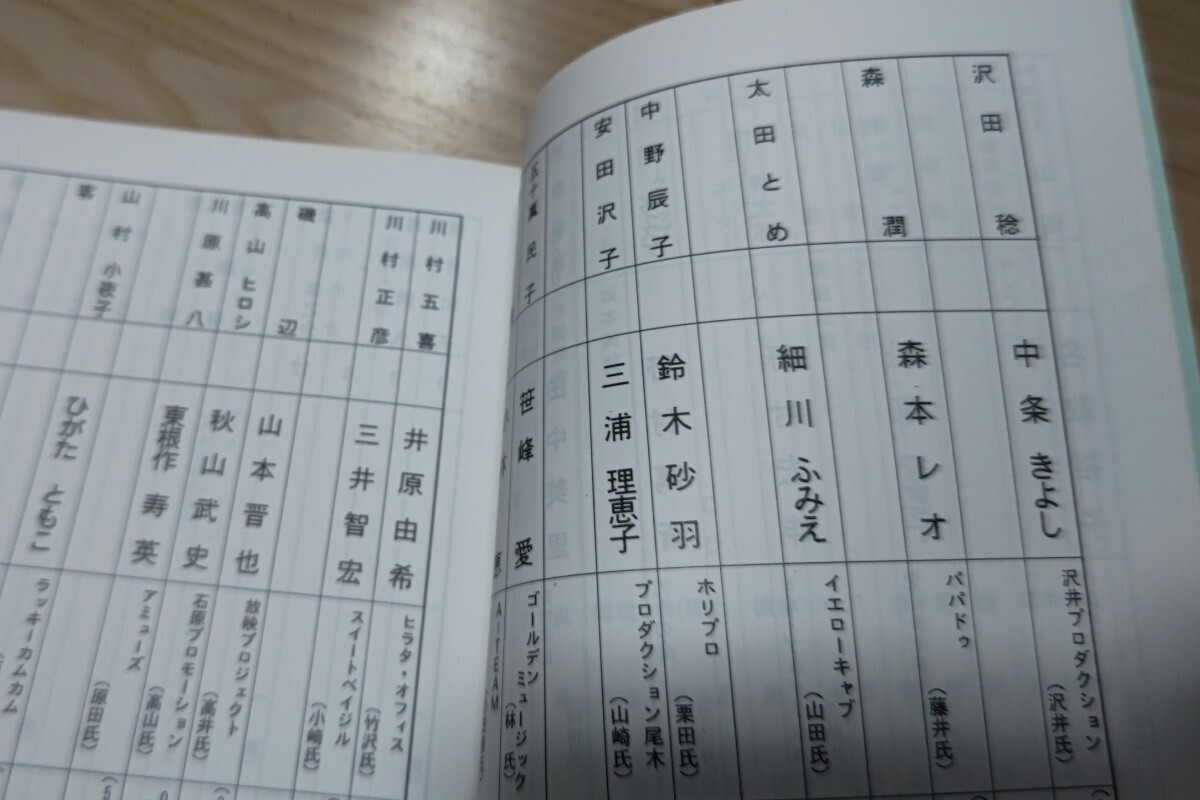 沢田稔
中条きよし
沢井プロダクション
（沢井氏）
森潤
森本レオ
パパドゥ
（藤井氏）
太田とめ
細川ふみえ
イエローキャブ
（山田氏）
中野辰子
鈴木砂羽
ホリプロ
（栗田氏）
安田沢子
三浦理恵子
プロダクション尾木
（山崎氏）
五十嵐民子
笹峰愛
ゴールデンミュージック
（林氏）
AITEAM
川村五喜
井原由希
ヒラタ・オフィス
（竹沢氏）
川村正彦
三井智宏
スイートベイジル
（小崎氏）
磯辺
高山ヒロシ
山本晋也
放映プロジェクト
（高井氏）
川原甚八
秋山武史
石原プロモーション
（高山氏）
東根作寿英
アミューズ
（原田氏）
山村小夜子
客
ひがたともこ
ラッキーカムカム